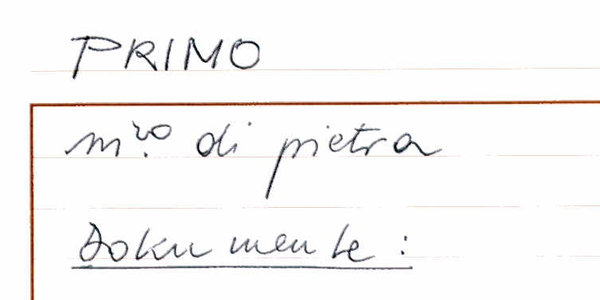 PRIMO
m.ro di pietra
Dokumente: